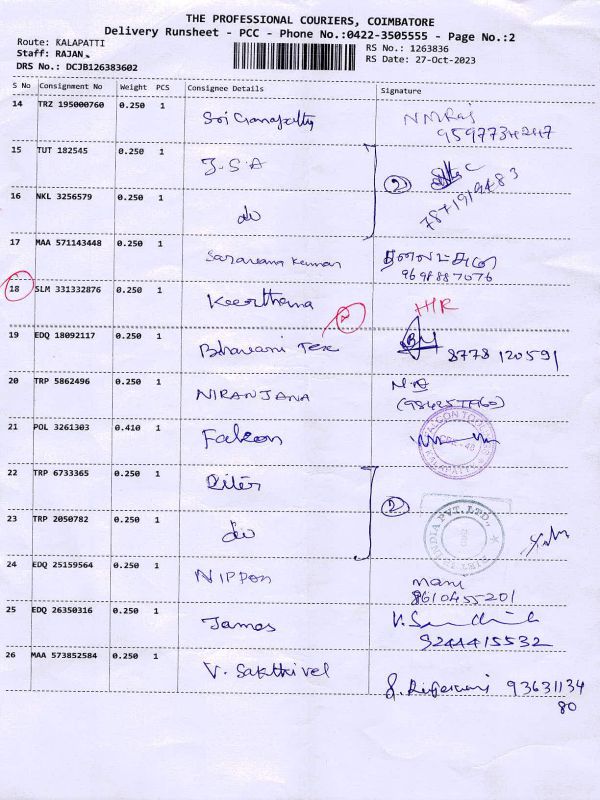 THE PROFESSIONAL COURIERS, COIMBATORE
Delivery Runsheet - PCC - Phone No.:0422-3505555 - Page No.:2
Route: KALAPATTI
Staff: RAJAN
DRS No.: DCJB126383602
RS No.: 1263836
RS Date: 27-Oct-2023
S No Consignment No Weight PCS Consignee Details Signature
14 TRZ 195000760 0.250 1 Sri Ganapathy
9597734247
15 TUT 182545 0.250 1 J.S.A
2
7871919483
16 NKL 3256579 0.250 1 do
17 MAA 571143448 0.250 1 Saravana Kumar
9698887076
18 SLM 331332876 0.250 1 Keerthana
HR
19 EDQ 18092117 0.250 1 Bhavani Tex 8778120591
20 TRP 5862496 0.250 1 NIRANJANA
21 POL 3261303 0.410 1 Falcon
KALAPATTI
22 TRP 6733365 0.250 1
2
23 TRP 2050782 0.250 1 do
INDIA PVT. LTD.,
24 EDQ 25159564 0.250 1 NIPPON Mani
8610455201
25 EDQ 26350316 0.250 1 James
9244415532
26 MAA 573852584 0.250 1 V. Sakthivel
93631134
80